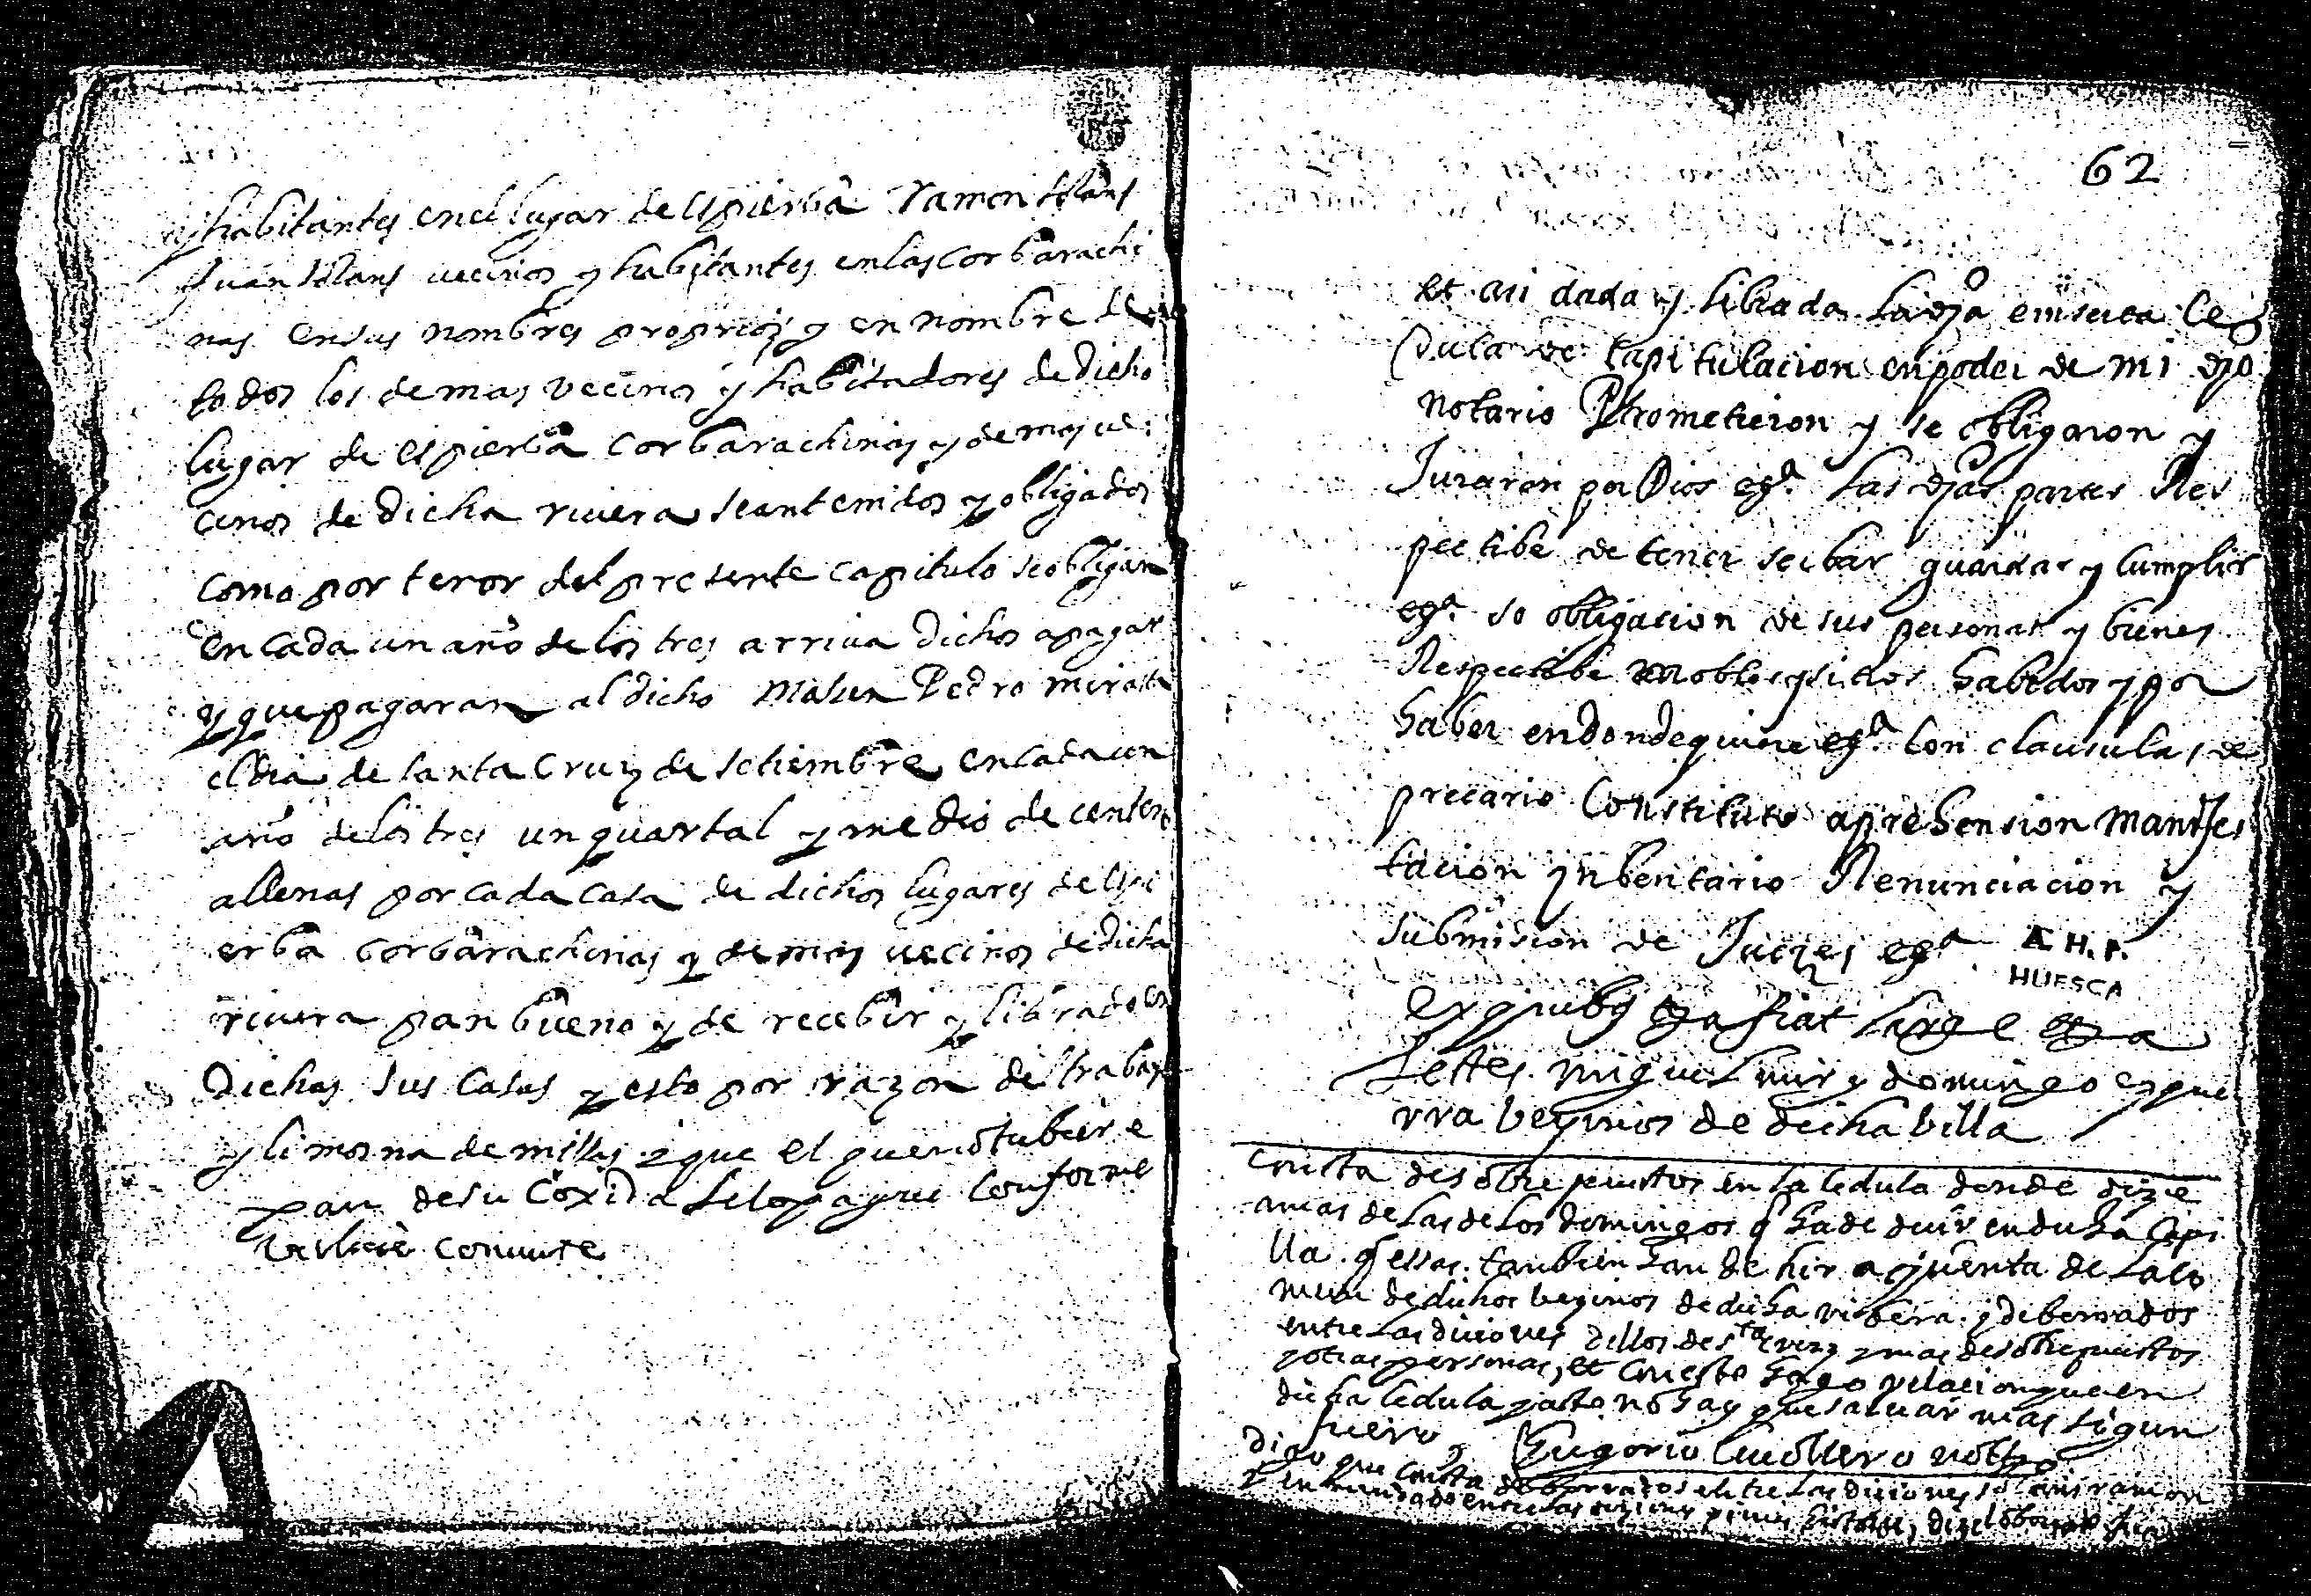 y habitantes en el lugar de espierba Ramon solans
Juan solans vecinos y habitantes en las corbarachi
nas en sus nombres proprios y en nombre de
todos los demas vecinos y habitadores de dicho
lugar de espierba corbarachinas y demas ve
cinos de dicha rivera sean tenidos y obligados
como por tenor del presente capitulo se obligan
en cada un año de los tres arriva dichos a pagar
y que pagaran al dicho Mosen Pedro mirasta
el dia de santa Cruz de setiembre en cada un
año de los tres un quartal y medio de centen
allenas por cada casa de dichos lugares de espi
erba corbarachinas y demas vecinos de dicha
rivera pan bueno y de recebir y librado en
dichas sus Casas y esto por razon del trabajo
y limosna de missas y que el que no tubiere
pan de su coxida se lo pague conforme
valiere comunte
62
et assi dada y librada la dja emserta Ce
dula de Capitulacion en poder de mi djo
notario Prometieron y se obligaron y
Juraron por Dios egª las djas partes Res
pectibe de tener serbar guardar y Cumplir
egª so obligacion de sus personas y bienes
Respectibe mobles y sitios habidos y por
haber en donde quiere egª Con clausulas de
precario Constituto aprehension manifes
tacion ynbentario Renunciacion y
submision de Juezes egª
A.H.P.
HUESCA
ex quibus ega fiat large ega
testes miguel mir y domingo esque
rra vezinos de dicha billa
Consta de sobre puestos en la cedula donde dize
a mas de las de los domingos q ha de decir en dicha Capi
lla q essas tambien han de hir a quenta de la co
mun de dichos bezinos de dicha ribera y de borrados
entre las diciones dellos de sta cruz y mas de sobrepuestos
y otras personas, et Con esto hago relacion que en
dicha cedula y acto no hay que saluar mas segun
fuero
Gregorio Cuello notto
Digo que Consta de borrados entre las diciones solans ramon
y enmendado entre las diziones